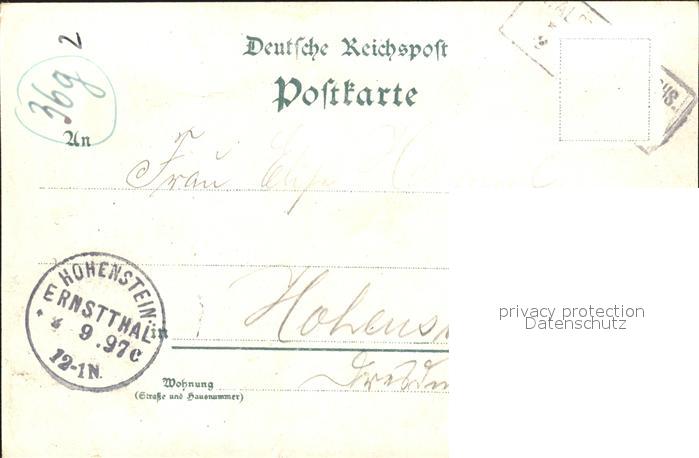 2
36g
Deutsche Reichspost
Postkarte
An
Frau Elise
HOHENSTEIN-
ERNSTTHAL
* 4 9.97 C
12-1N.
in
Hohens
Dresdn
Wohnung
(Straße und Hausnummer)
privacy protection
Datenschutz